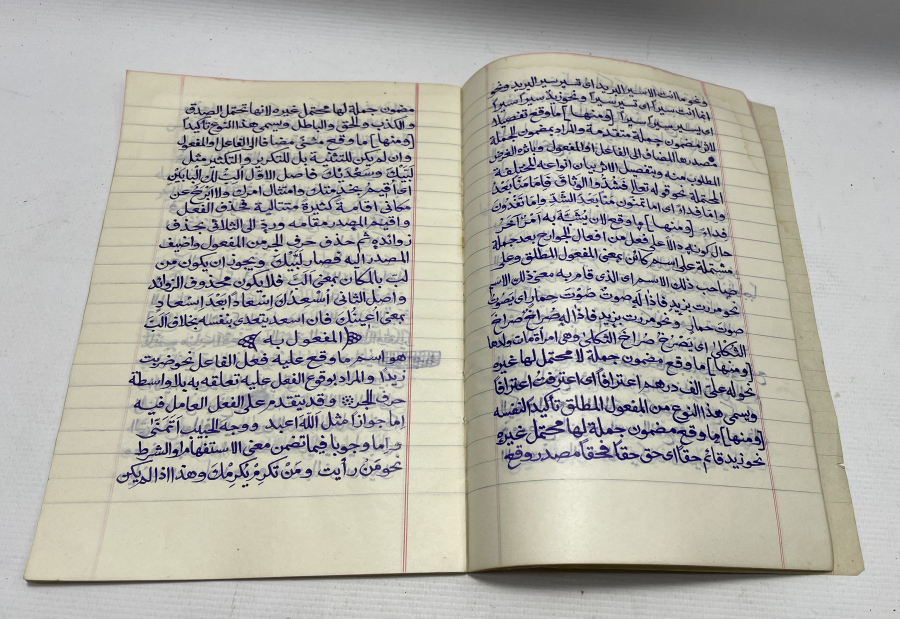 ونحو ما انت الا سير البريد اى تسير سير البريد ونحو
انما انت سيرا اى تسير سيرا ونحو زيد سيرا سيرا
اى يسير سيرا سيرا [ومنها] ما وقع تفصيلا
لاثر مضمون جملة متقدمة والمراد بمضمون الجملة
مصدرها المضاف الى الفاعل او المفعول وباثره الغرض
المطلوب منه وبتفصيل الاثر بيان انواعه المختلفة
المحتملة نحو قوله تعالى فشدوا الوثاق فاما منا بعد
واما فداء اى اما تمنون منا بعد الشد واما تفدون
فداء [ومنها] ما وقع لان يشبه به امر آخر
حال كونه دالا على فعل من افعال الجوارح بعد جملة
مشتملة على اسم كائن بمعنى المفعول المطلق وعلى
صاحب ذلك الاسم اى الذى قام به معنى ذلك الاسم
نحو مررت بزيد فاذا له صوت صوت حمار اى يصوت
صوت حمار ونحو مررت بزيد فاذا له صراخ صراخ
الثكلى اى يصرخ صراخ الثكلى وهى امرأة مات ولدها
[ومنها] ما وقع مضمون جملة لا محتمل لها غيره
نحو له على الف درهم اعترافا اى اعترفت اعترافا
ويسمى هذا النوع من المفعول المطلق تأكيدا لنفسه
[ومنها] ما وقع مضمون جملة لها محتمل غيره
نحو زيد قائم حقا اى حق حقا فحقا مصدر وقع
مضمون جملة لها محتمل غيره لانها تحتمل الصدق
والكذب والحق والباطل ويسمى هذا النوع تأكيدا
[ومنها] ما وقع مثنى مضافا الى الفاعل او المفعول
وان لم يكن للتثنية بل للتكرير والتكثير مثل
لبيك وسعديك فاصل الاول الب لك البابين
اى أقيم بخدمتك وامتثال امرك ولا ابرح عن
مكانى اقامة كثيرة متتالية فحذف الفعل
واقيم المصدر مقامه ورد الى الثلاثى بحذف
زوائده ثم حذف حرف الجر من المفعول واضيف
المصدر اليه فصار لبيك ويجوز ان يكون من
لب بالمكان بمعنى الب فلا يكون محذوف الزوائد
واصل الثانى أسعدك اسعادا بعد اسعاد
بمعنى اعينك فان اسعد يتعدى بنفسه بخلاف الب
(المفعول به)
هو اسم ما وقع عليه فعل الفاعل نحو ضربت
زيدا والمراد بوقوع الفعل عليه تعلقه به بلا واسطة
حرف الجر وقد يتقدم على الفعل العامل فيه
اما جوازا مثل الله اعبد ووجه الحبيب اتمنى
واما وجوبا فيما تضمن معنى الاستفهام او الشرط
نحو من رأيت ومن تكرم يكرمك وهذا اذا لم يكن